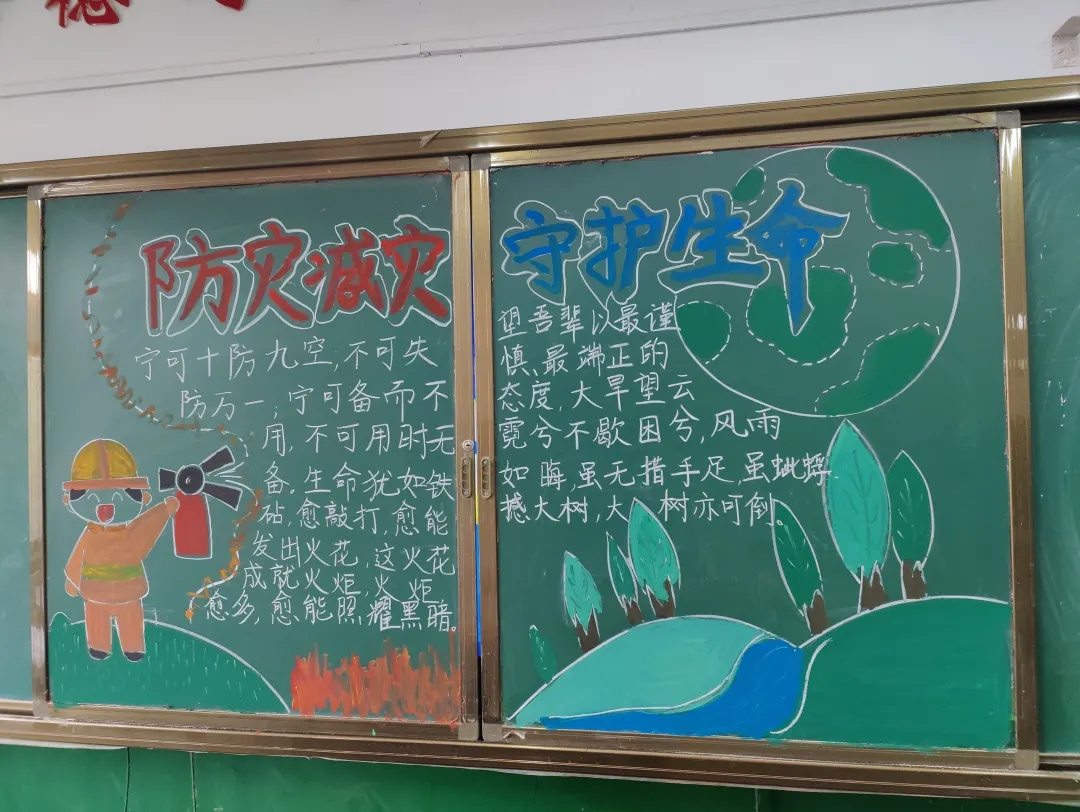 防灾减灾
宁可十防九空,不可失
防万一;宁可备而不
用,不可用时无
备。生命犹如铁
砧,愈敲打,愈能
发出火花,这火花
成就火炬,火炬
愈多,愈能照耀黑暗。
守护生命
望吾辈以最谨
慎、最端正的
态度,大旱望云
霓兮不歇困兮,风雨
如晦,虽无措手足,虽蚍蜉
撼大树,大树亦可倒。